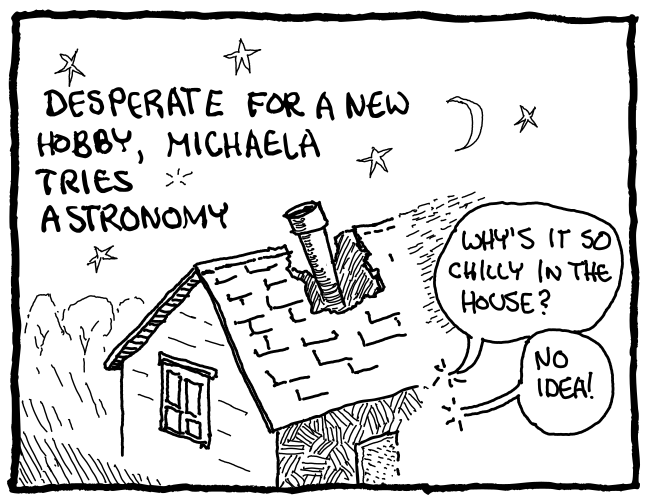 DESPERATE FOR A NEW
HOBBY, MICHAELA
TRIES
ASTRONOMY
WHY'S IT SO
CHILLY IN THE
HOUSE?
NO
IDEA!